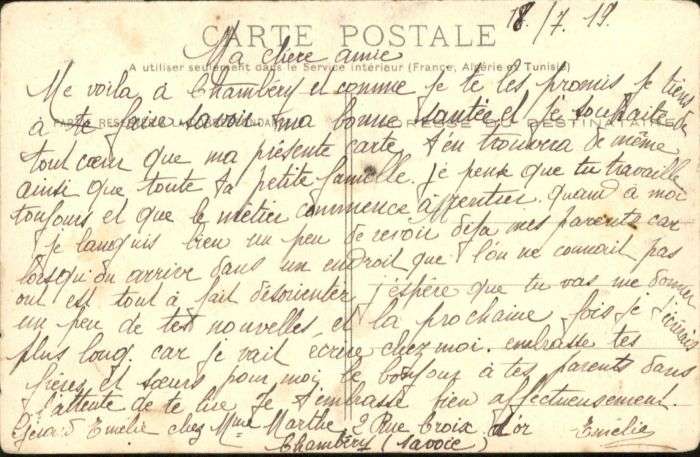 18/7.19
CARTE POSTALE
Ma chère amie
A utiliser seulement dans le Service intérieur (France, Algérie et Tunisie)
Me voila à Chambéry et comme je te les promis je tiens
à te faire savoir ma bonne santée et je souhaite de
tout cœur que ma présente carte t'en trouvera de même
ainsi que toute ta petite famille. je pense que tu travaille
toujours et que le métier commence à rentrer. quand à moi
je languis bien un peu de revoir deja mes parents car
lorsqu'on arrive dans un endroit que l'on ne connait pas
ont est tout à fait désorienter j'espère que tu vas me donner
un peu de tes nouvelles et la prochaine fois je t'écrirais
plus long. car je vait écrire chez moi. embrasse tes
frères et sœurs pour moi, le bonjour à tes parents dans
l'attente de te lire Je t'embrasse bien affectueusement.
Emélie chez Mme Marthe 2 Rue Croix d'or Emélie
Chambéry (Savoie)